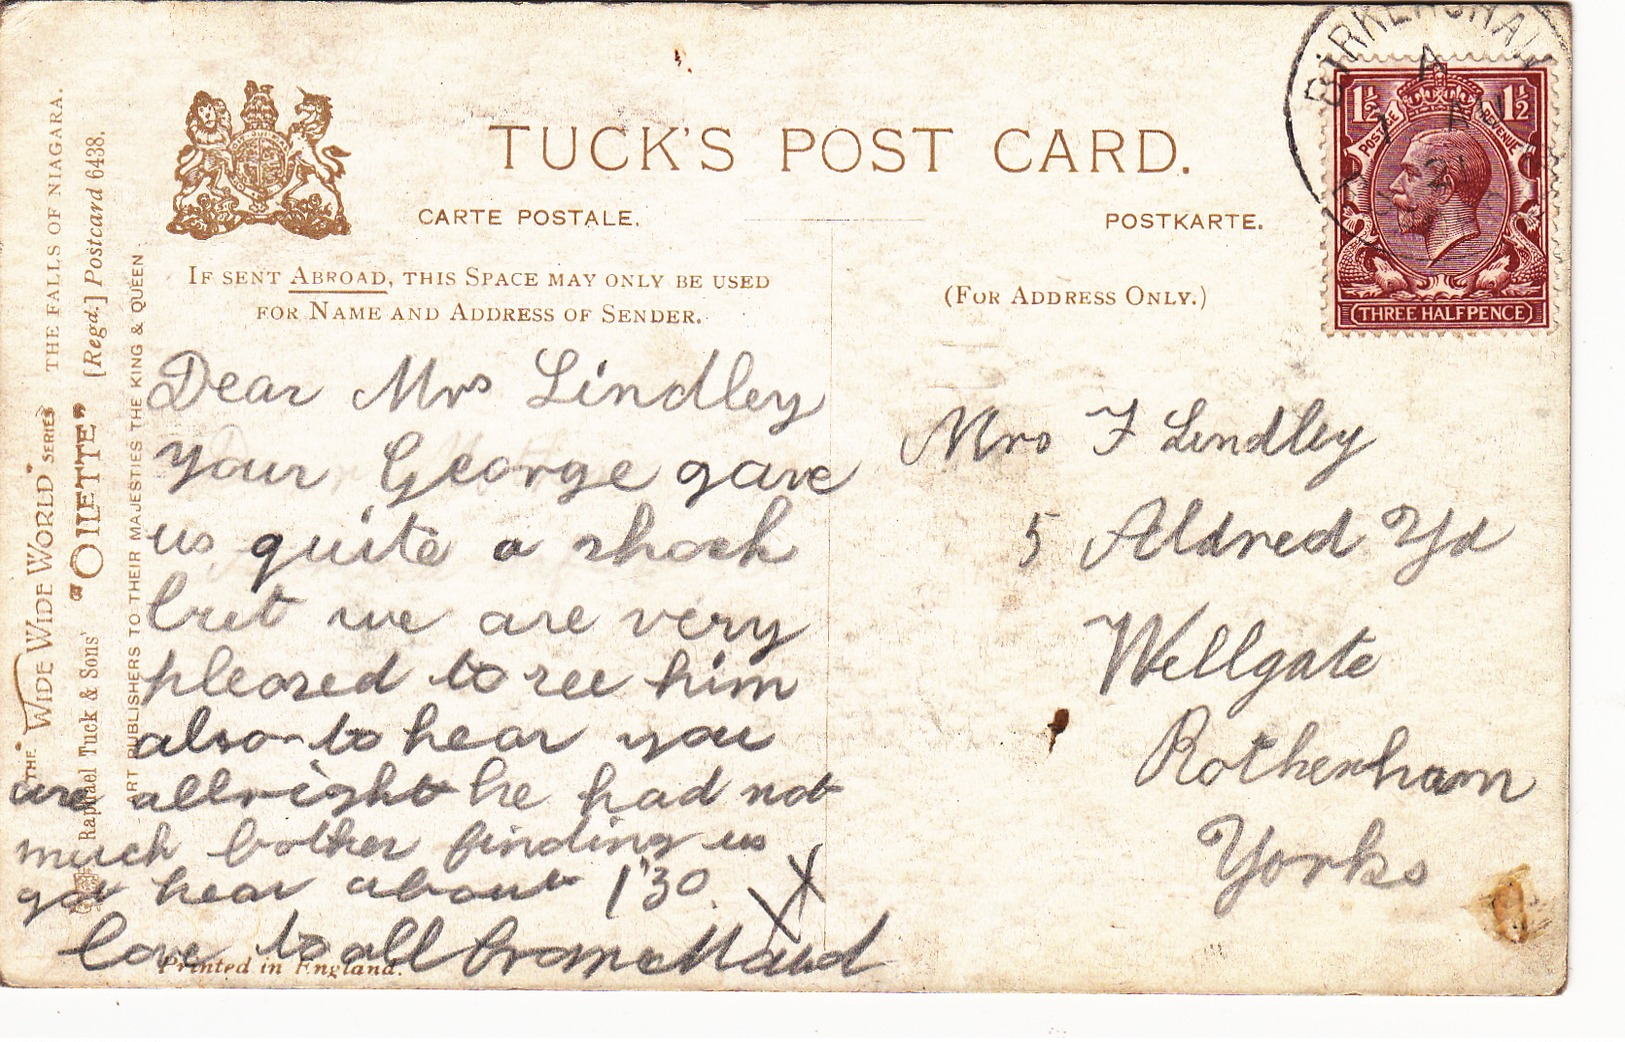 TUCK'S POST CARD.
CARTE POSTALE.
POSTKARTE.
IF SENT ABROAD, THIS SPACE MAY ONLY BE USED
FOR NAME AND ADDRESS OF SENDER.
(FOR ADDRESS ONLY.)
Dear Mrs Lindley
Your George gave
us quite a shock
but we are very
pleased to see him
also to hear you
are allright he had not
much bother finding us
got hear about 1'30.
X X
love to all from Maud
Printed in England.
Mrs F Lindley
5 Aldred Yd
Wellgate
Rotherham
Yorks
THE "WIDE WIDE WORLD" SERIES THE FALLS OF NIAGARA.
Raphael Tuck & Sons' "OILETTE" [Regd.] Postcard 6438.
ART PUBLISHERS TO THEIR MAJESTIES THE KING & QUEEN
BIRKENSHAW
A
1 AU
21
1½ 1½
POSTAGE REVENUE
THREE HALFPENCE